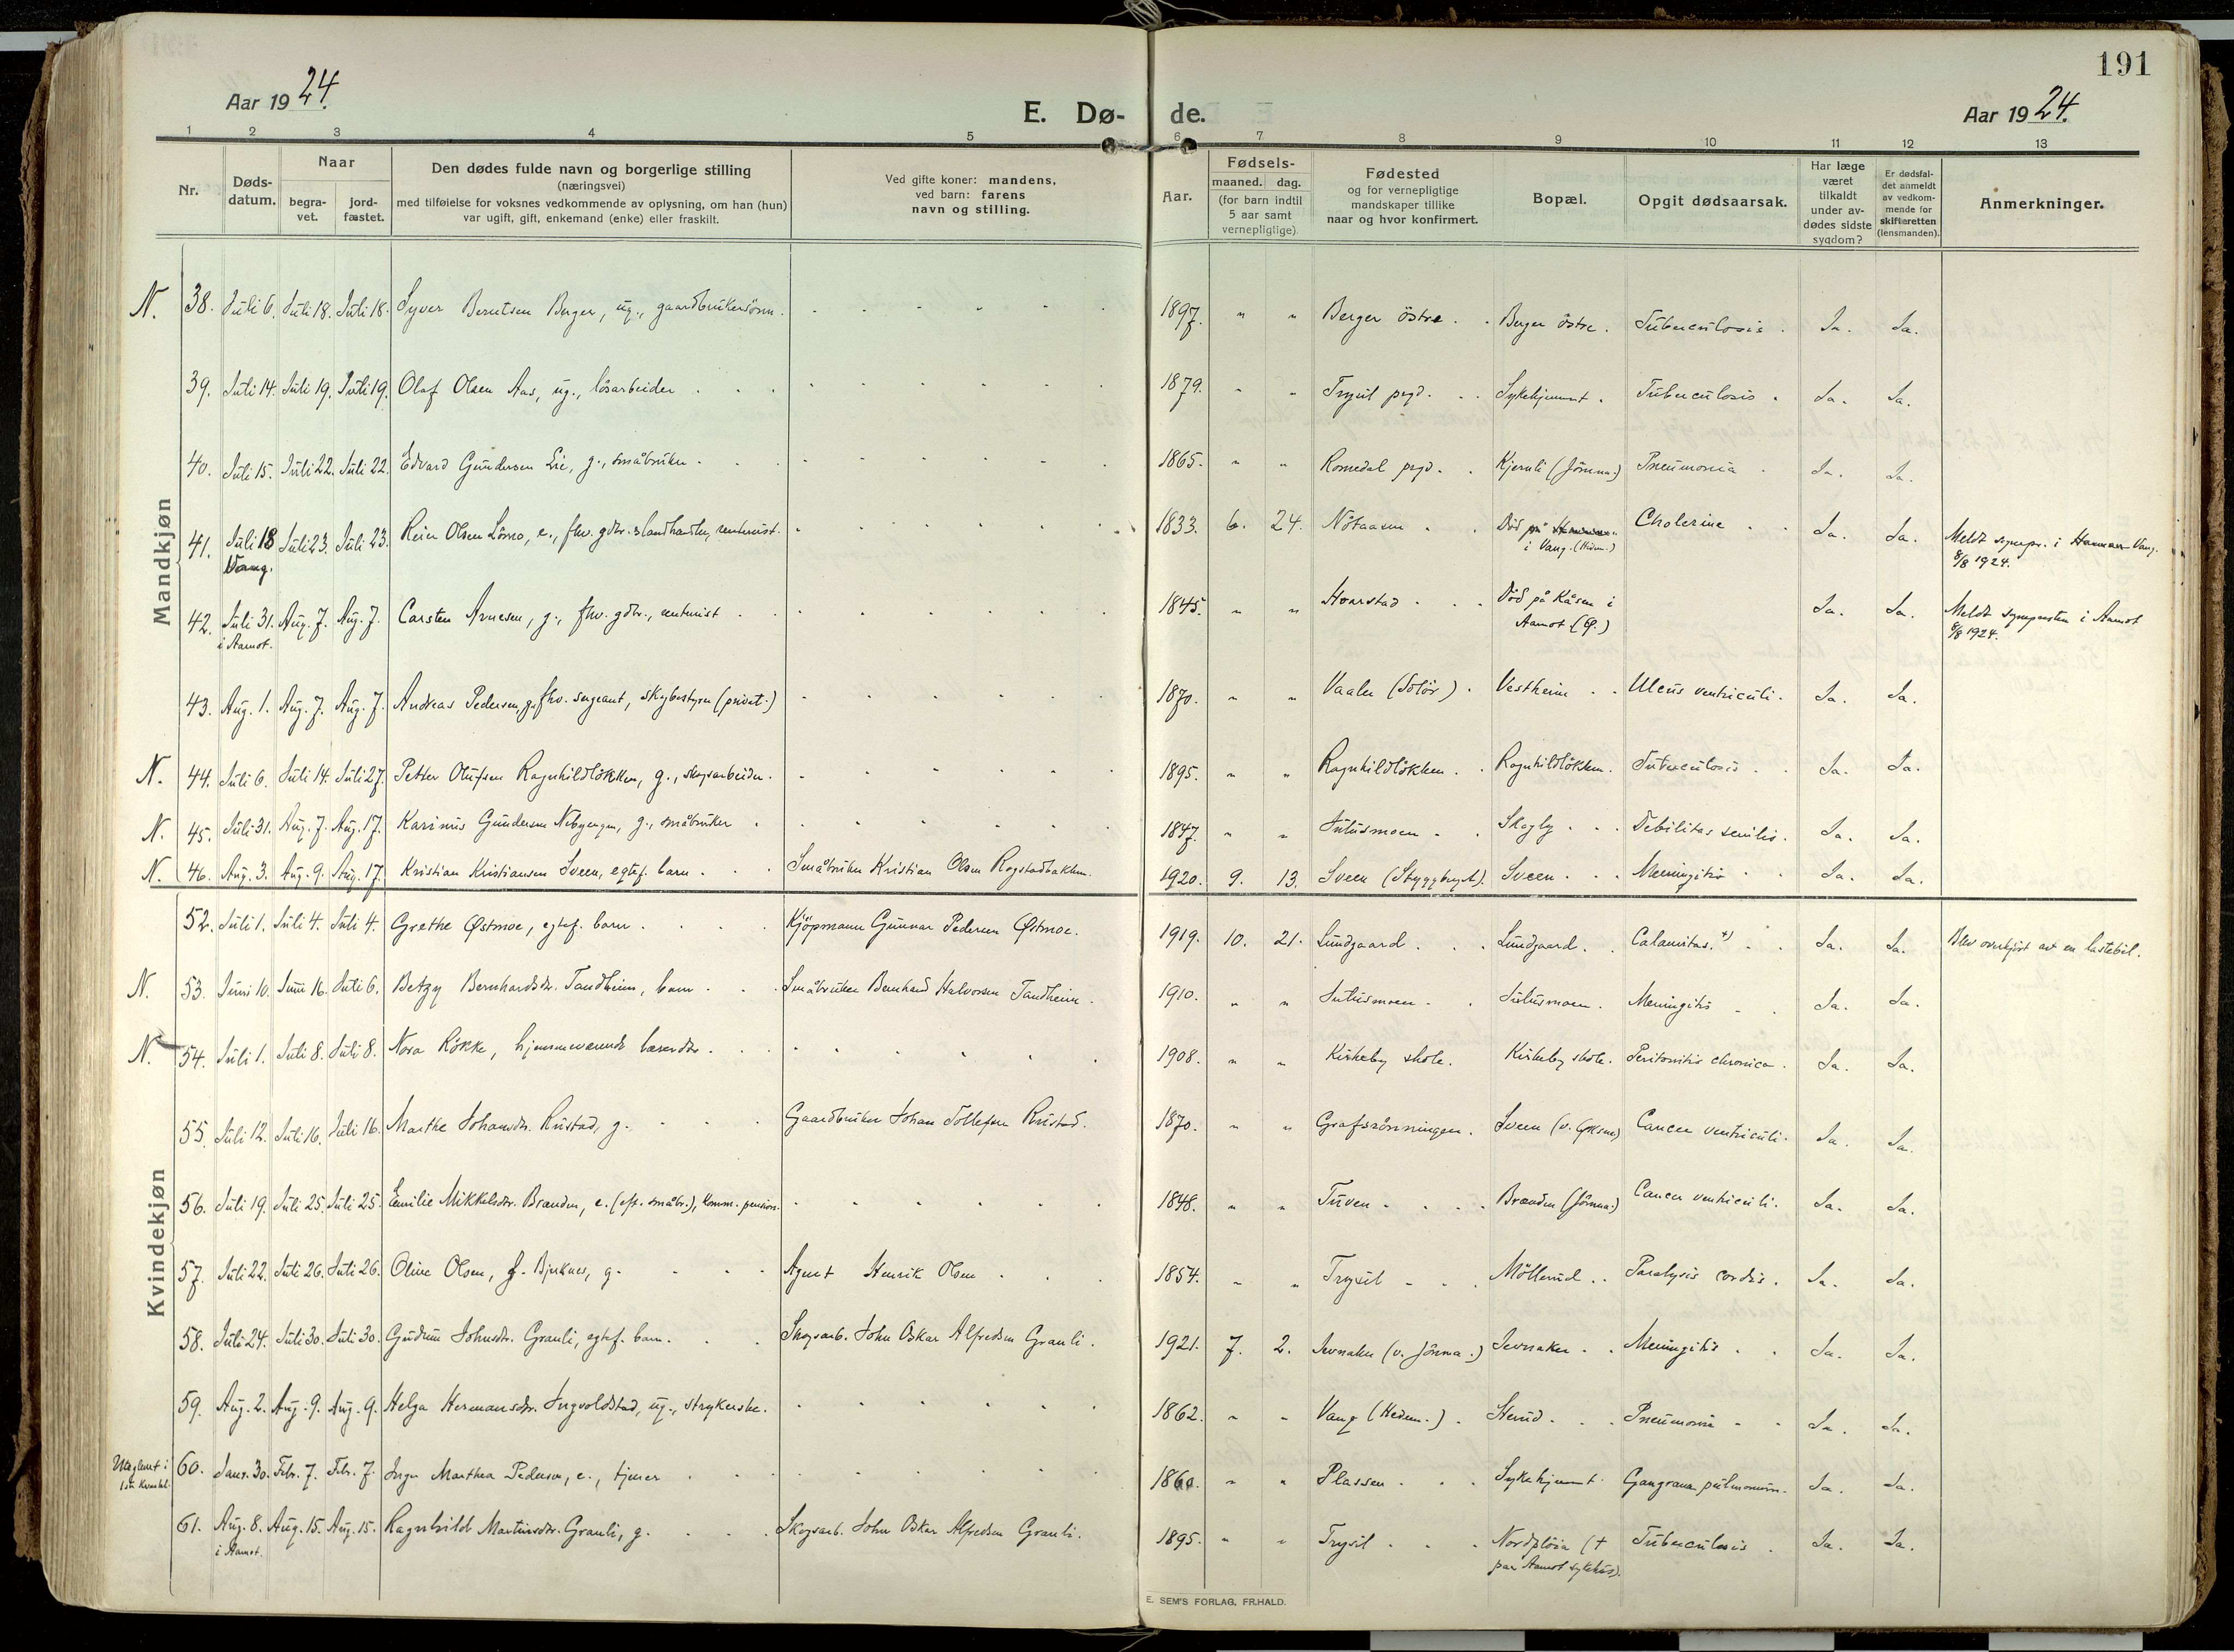 191
Aar 1924.
E. Dø-
de.
Aar 1924.
1 2 3 4 5 6 7 8 9 10 11 12 13
Nr.
Døds-
datum.
Naar
begra-
vet.
jord-
fæstet.
Den dødes fulde navn og borgerlige stilling
(næringsvei)
med tilføielse for voksnes vedkommende av oplysning, om han (hun)
var ugift, gift, enkemand (enke) eller fraskilt.
Ved gifte koner: mandens,
ved barn: farens
navn og stilling.
Aar.
Fødsels-
maaned. dag.
(for barn indtil
5 aar samt
vernepligtige).
Fødested
og for vernepligtige
mandskaper tillike
naar og hvor konfirmert.
Bopæl.
Opgit dødsaarsak.
Har læge
været
tilkaldt
under av-
dødes sidste
sygdom?
Er dødsfal-
det anmeldt
av vedkom-
mende for
skifteretten
(lensmanden).
Anmerkninger.
Mandkjøn
N. 38. Juli 6. Juli 18. Juli 18. Syver Berntsen Berger, ug., gaardbrukersönn. 1897. " " Berger östre. Berger östre. Tuberculosis. Ja. Ja.
39. Juli 14. Juli 19. Juli 19. Olaf Olsen Aas, ug., lösarbeider 1879. " " Trysil prgd. Sykehjemmet. Tuberculosis. Ja. Ja.
40. Juli 15. Juli 22. Juli 22. Edvard Gundersen Lie, g., småbruker. 1865. " " Romedal prgd. Kjernli (Jömna.) Pneumonia Ja. Ja.
41. Juli 18 Juli 23. Juli 23. Reier Olsen Lörno, e., fhv. gdbr. & landhandler, rentenist. 1833. 6. 24. Nötaasen Död på Cholerine Ja. Ja. Meldt sogneper. i Hamar Vang.
Vang. i Vang. (Hedm.) 8/8 1924.
42. Juli 31. Aug. 7. Aug. 7. Carsten Arnesen, g., fhv. gdbr., rentenist 1845. " " Hoarstad Död på Kåsen i Ja. Ja. Meldt sognepresten i Aamot
i Aamot. Aamot (Ø.) 8/8 1924.
43. Aug. 1. Aug. 7. Aug. 7. Andreas Pedersen, g., fhv. sergeant, skogbestyrer (privat.) 1870. " " Vaaler (Solör). Vestheim Ulcus ventriculi. Ja. Ja.
N. 44. Juli 6. Juli 14. Juli 27. Petter Olufsen Ragnhildlökken, g., skogsarbeider. 1895. " " Ragnhildlökken. Ragnhildlökken. Tuberculosis Ja. Ja.
N. 45. Juli 31. Aug. 7. Aug. 17. Karinus Gundersen Nebyengen, g., småbruker 1847. " " Julusmoen Skogly Debilitas senilis. Ja. Ja.
N. 46. Aug. 3. Aug. 9. Aug. 17. Kristian Kristiansen Sveen, egtef. barn Småbruker Kristian Olsen Rogstadbakken. 1920. 9. 13. Sveen (Styggberget). Sveen Meningitis Ja. Ja.
Kvindekjøn
52. Juli 1. Juli 4. Juli 4. Grethe Østmoe, egtef. barn. Kjöpmann Gunnar Pedersen Østmoe. 1919. 10. 21. Lundgaard Lundgaard. Calamitas. +) Ja. Ja. Blev overkjört av en lastebil.
N. 53. Juni 10. Juni 16. Juli 6. Betzy Bernhardsdr. Tandheim, barn Småbruker Bernhard Halvorsen Tandheim. 1910. " " Julusmoen Julusmoen. Meningitis Ja. Ja.
N. 54. Juli 1. Juli 8. Juli 8. Nora Rökke, hjemmeværende lærerdtr. 1908. " " Kirkeby skole. Kirkeby skole. Peritonitis chronica. Ja. Ja.
55. Juli 12. Juli 16. Juli 16. Marthe Johansdr. Rustad, g. Gaardbruker Johan Tollefsen Rustad. 1870. " " Grafsrönningen. Sveen Cancer ventriculi. Ja. Ja.
56. Juli 19. Juli 25. Juli 25. Emilie Mikkelsdr. Branden, e. (eft. småbr.), komm. pension. 1848. " " Tuven Brænden (Jömna.) Cancer ventriculi. Ja. Ja.
57. Juli 22. Juli 26. Juli 26. Oline Olsen, f. Bjerknes, g. Agent Henrik Olsen 1854. " " Trysil Möllerud Paralysis cordis. Ja. Ja.
58. Juli 24. Juli 30. Juli 30. Gudrun Johnsdr. Granli, egtef. barn. Skogsarb. John Oskar Alfredsen Granli. 1921. 7. 2. Jevnaker (v. Jömna.) Jevnaker Meningitis Ja. Ja.
59. Aug. 2. Aug. 9. Aug. 9. Helga Hermansdr. Ingvoldstad, ug., strykerske. 1862. " " Vang (Hedm.) Sterud Pneumonia Ja. Ja.
Uteglemt i
1ste kvartal. 60. Janr. 30. Febr. 7. Febr. 7. Inger Marthea Pedersen, e., tjener 1860. " " Plassen Sykehjemmet. Gangræna pulmonum. Ja. Ja.
61. Aug. 8. Aug. 15. Aug. 15. Ragnhild Martinsdr. Granli, g. Skogsarb. John Oskar Alfredsen Granli. 1895. " " Trysil Nordplöia († Tuberculosis Ja. Ja.
i Aamot. paa Aamot sykehus).
E. SEM'S FORLAG, FR.HALD.